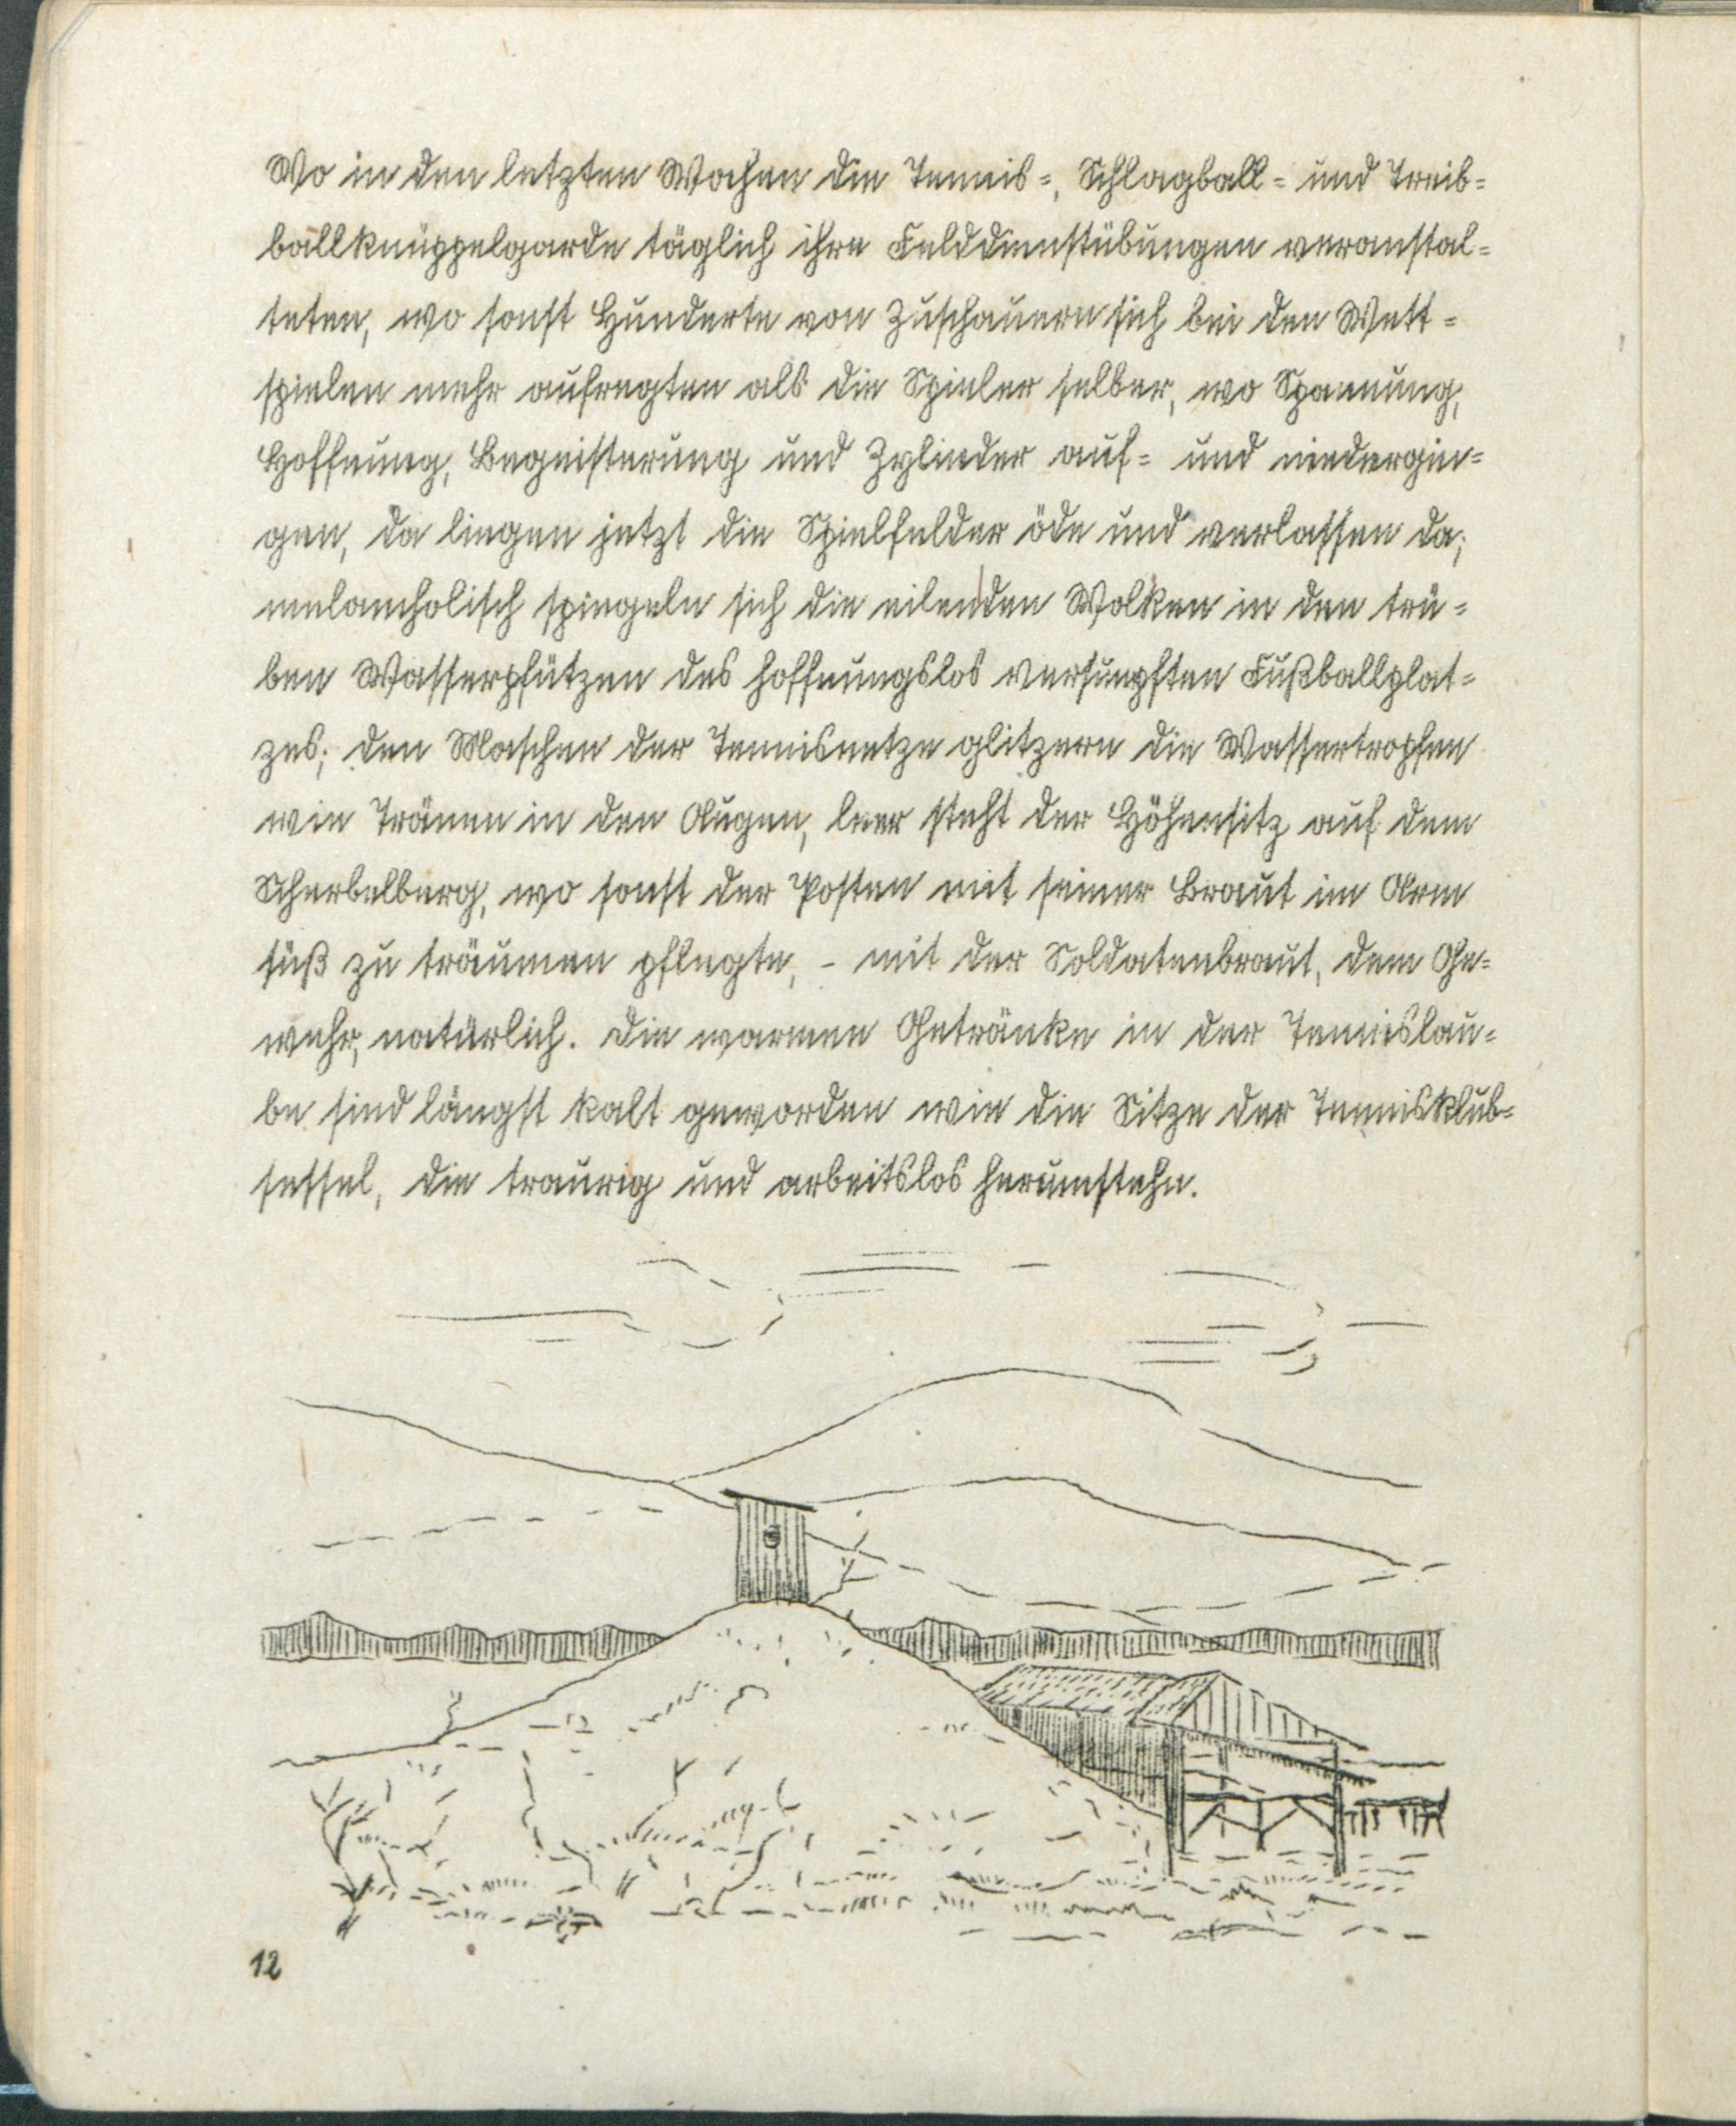 Wo in den letzten Wochen die Tennis-, Schlagball- und Treib-
ballknüppelgarde täglich ihre Felddienstübungen veranstal-
teten, wo sonst Hunderte von Zuschauern sich bei den Wett-
spielen mehr aufregten als die Spieler selber, wo Spannung,
Hoffnung, Begeisterung und Zylinder auf- und niedergin-
gen, da liegen jetzt die Spielfelder öde und verlassen da;
melancholisch spiegeln sich die eilenden Wolken in den trü-
ben Wasserpfützen des hoffnungslos versumpften Fußballplat-
zes; den Maschen der Tennisnetze glitzern die Wassertropfen
wie Tränen in den Augen, leer steht der Höhensitz auf dem
Scherbelberg, wo sonst der Posten mit seiner Braut im Arm
süß zu träumen pflegte, - mit der Soldatenbraut, dem Ge-
wehr, natürlich. Die warmen Getränke in der Tennislau-
be sind längst kalt geworden wie die Sitze der Tennisklub-
sessel, die traurig und arbeitslos herumstehn.
12